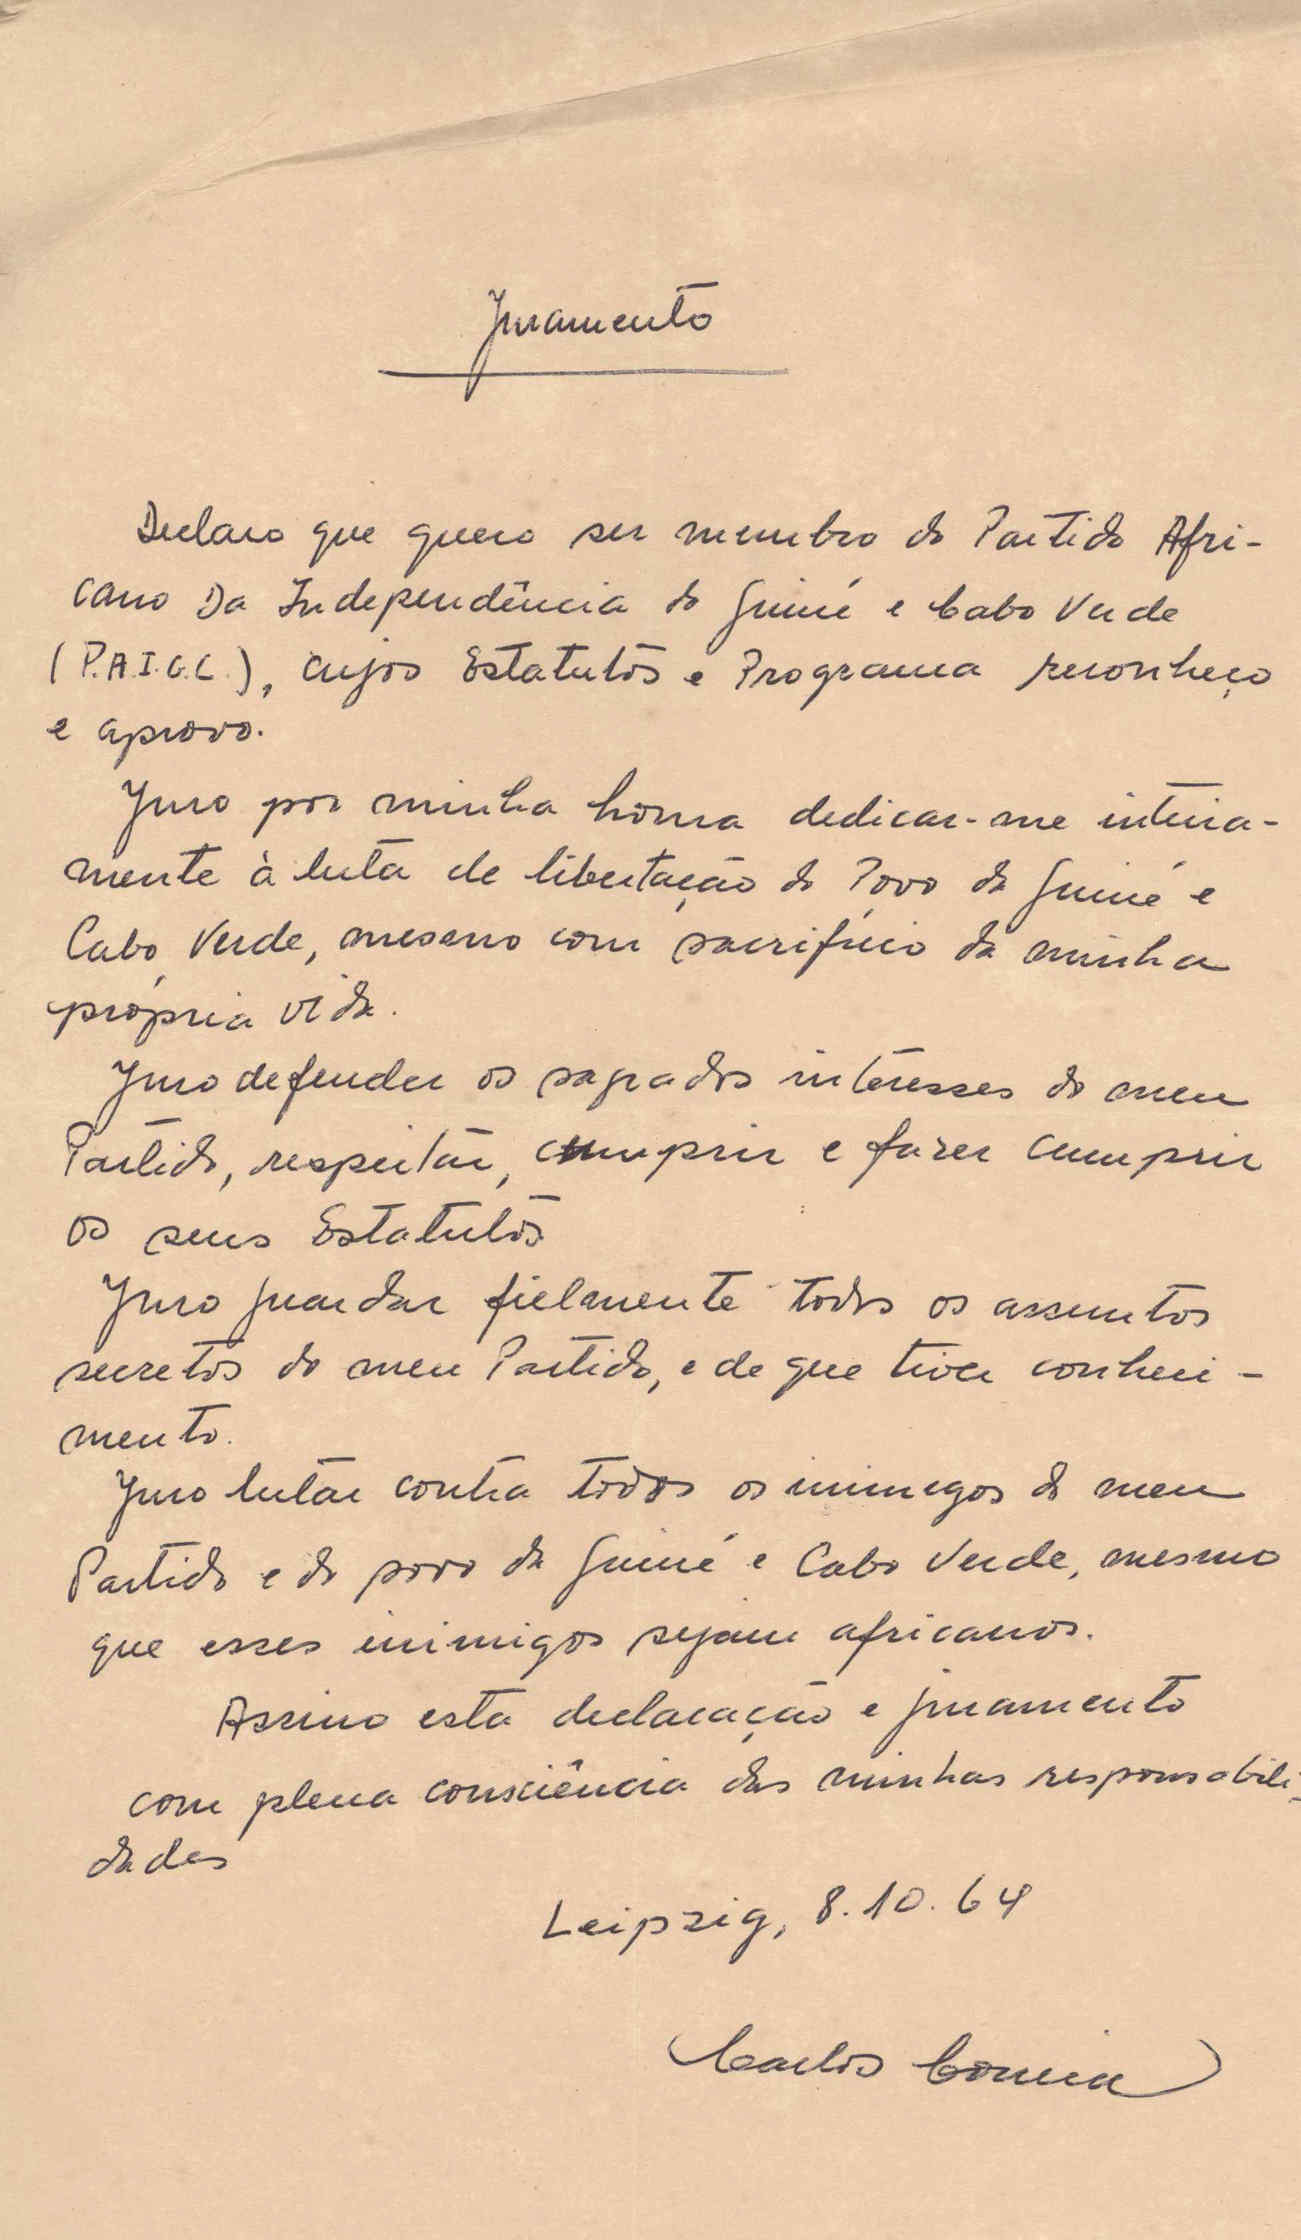 Juramento
Declaro que quero ser membro do Partido Afri-
cano Da Independência do Guiné e Cabo Verde
(P.A.I.G.C.), cujos Estatutos e Programa reconheço
e aprovo.
Juro por minha honra dedicar-me inteira-
mente à luta de libertação do Povo da Guiné e
Cabo Verde, mesmo com sacrifício da minha
própria vida.
Juro defender os sagrados interesses do meu
Partido, respeitar, cumprir e fazer cumprir
os seus Estatutos
Juro guardar fielmente todos os assuntos
secretos do meu Partido, e de que tiver conheci-
mento.
Juro lutar contra todos os inimigos do meu
Partido e do povo da Guiné e Cabo Verde, mesmo
que esses inimigos sejam africanos.
Assino esta declaração e juramento
com plena consciência das minhas responsabili-
dades
Leipzig, 8.10.64
(Carlos Correia)